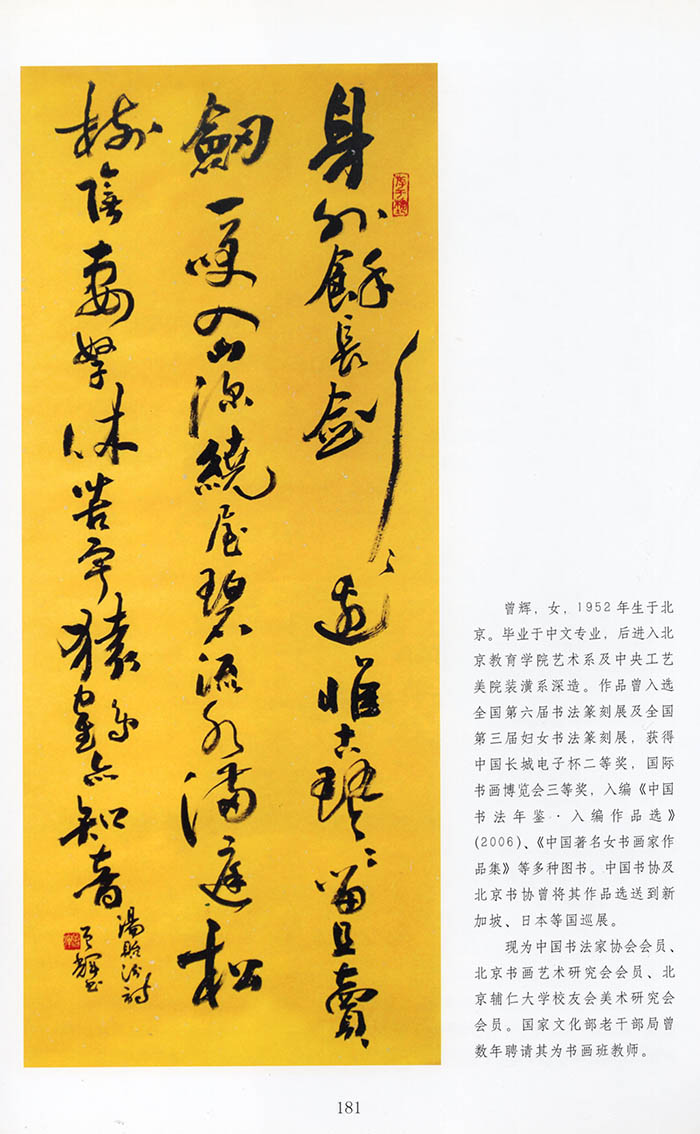 身外餘長剑〻边惟古琴〻留且賣
劒一咲入山深繞屋碧流水滿庭松
树陰妻孥休苦
猿鶴亦知音
湯貽汾詩
曾輝书
曾辉，女，1952 年生于北
京。毕业于中文专业，后进入北
京教育学院艺术系及中央工艺
美院装潢系深造。作品曾入选
全国第六届书法篆刻展及全国
第三届妇女书法篆刻展，获得
中国长城电子杯二等奖，国际
书画博览会三等奖，入编《中国
书法年鉴·入编作品选》
(2006)、《中国著名女书画家作
品集》等多种图书。中国书协及
北京书协曾将其作品选送到新
加坡、日本等国巡展。
现为中国书法家协会会员、
北京书画艺术研究会会员、北
京辅仁大学校友会美术研究会
会员。国家文化部老干部局曾
数年聘请其为书画班教师。
181